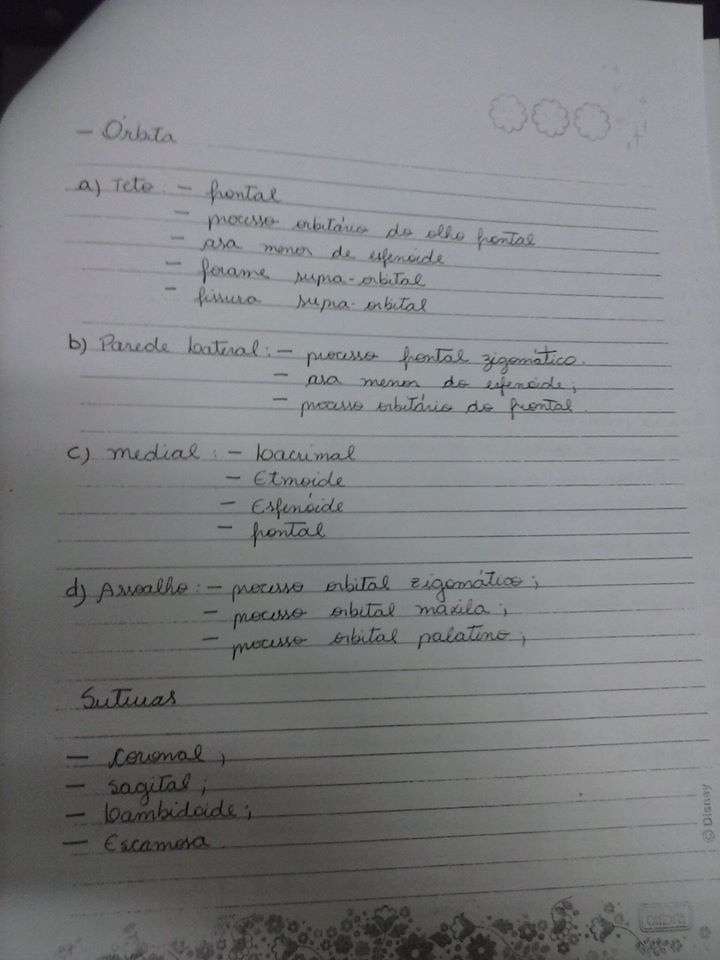 - Órbita
a) Teto: - frontal
- processo orbitário do olho frontal
- asa menor de esfenoide
- forame supra-orbital
- fissura supra-orbital
b) Parede Lateral: - processo frontal zigomático.
- asa menor do esfenoide;
- processo orbitário do frontal.
c) medial: - Lacrimal
- Etmoide
- Esfenóide
- frontal
d) Assoalho: - processo orbital zigomático;
- processo orbital máxila;
- processo orbital palatino;
Suturas
- coronal;
- sagital;
- Lambidoide;
- Escamosa.
© Disney